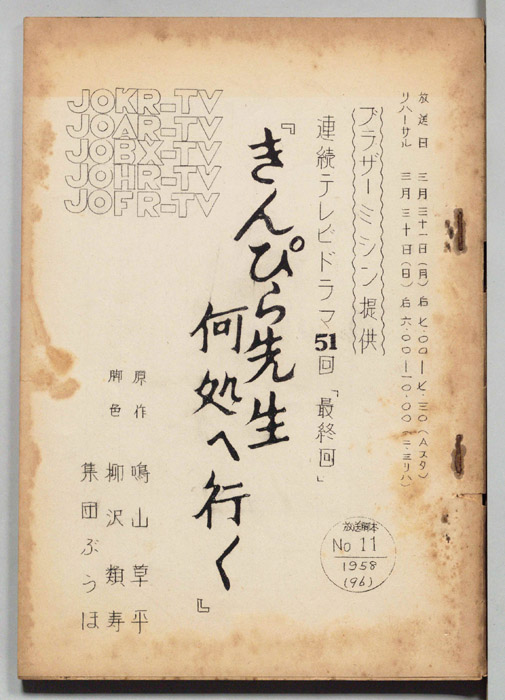 放送日 三月三十一日(月)后七.〇〇―七.三〇(Aスタ)
リハーサル 三月三十日(日)后六.〇〇―一〇.〇〇(二.三リハ)
ブラザーミシン提供
連続テレビドラマ51回「最終回」
『きんぴら先生
何処へ行く』
JOKR-TV
JOAR-TV
JOBX-TV
JOHR-TV
JOFR-TV
原作 鳴山草平
脚色 柳沢類寿
集団ぶうほ
放送脚本
No 11
1958
(96)